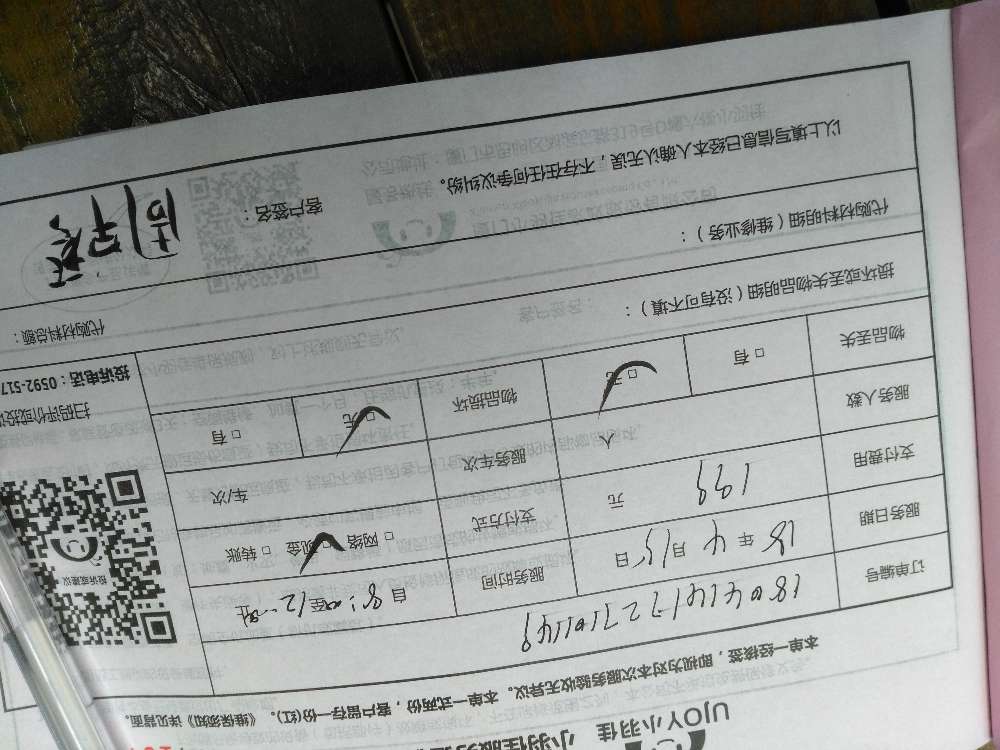 UJOY小羽佳
本单一经核签，即视为对本次服务验收无异议。本单一式两份，客户留存一份(红)。《维保须知》详见背面。
订单编号 180414172710149
服务日期 18年4月15日 服务时间 自8:00至12:00止
支付费用 199 元 支付方式 □网络 □现金 □转账
服务人数 人 服务车次 车/次
物品丢失 □有 □无 物品损坏 □无 □有
损坏或丢失物品明细（没有可不填）：
代购材料明细（维修业务）： 代购材料总额：
以上填写信息已经本人确认无误，不存在任何争议纠纷。 客户签名：
投诉或建议
扫码评价或投
投诉电话：0592-517